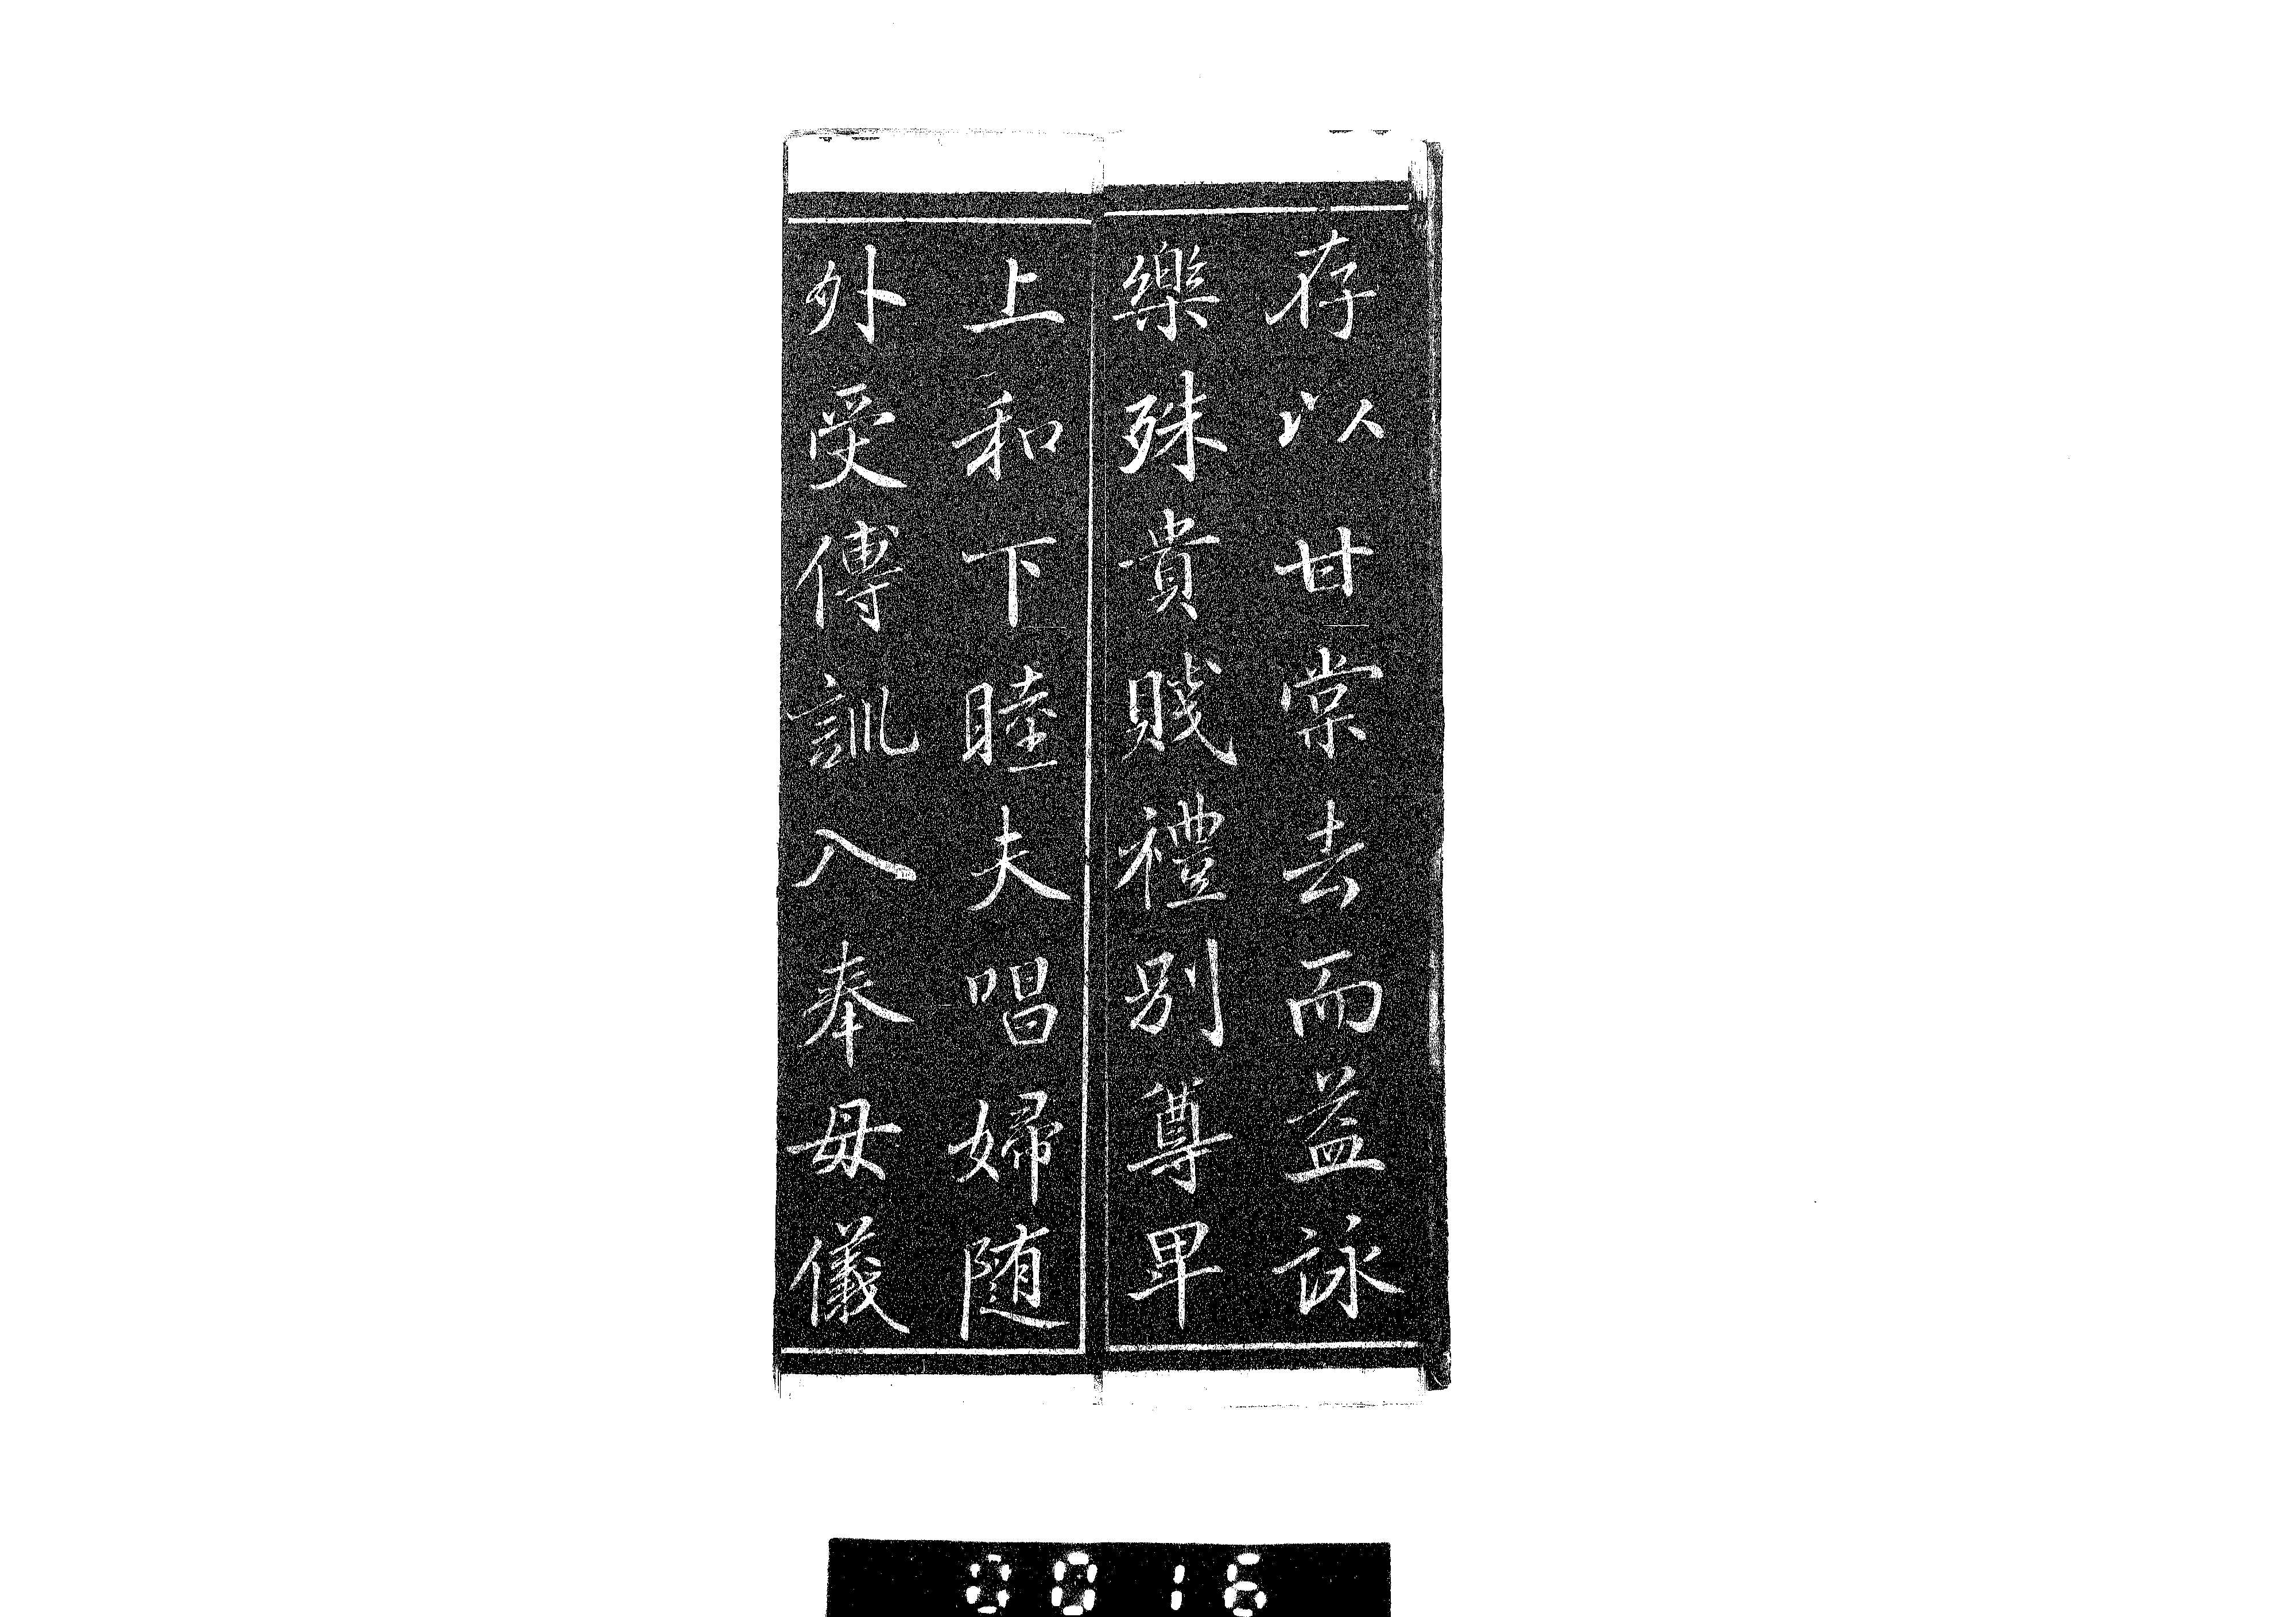 存以甘棠去而益詠
樂殊貴賤禮別尊卑
上和下睦夫唱婦随
外受傅訓入奉母儀
0016